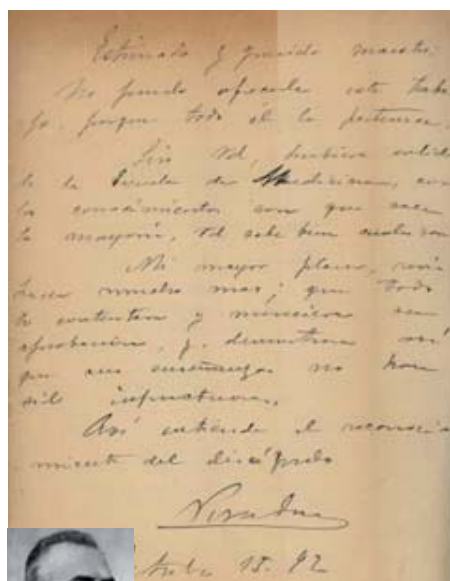 Estimado y querido maestro:
No puedo ofrecerle este traba
jo, porque todo él le pertenece.
Sin Vd, hubiera salido
de la Escuela de Medicina, con
los conocimientos con que sale
la mayoría, Vd sabe bien cuales son
Mi mayor placer, sería
hacer mucho mas; que todo
lo contentara y mereciera su
aprobación, y demostrara así
que sus enseñanzas no han
sido infructuosas.
Así entiende el reconoci
miento del discípulo
15. 92